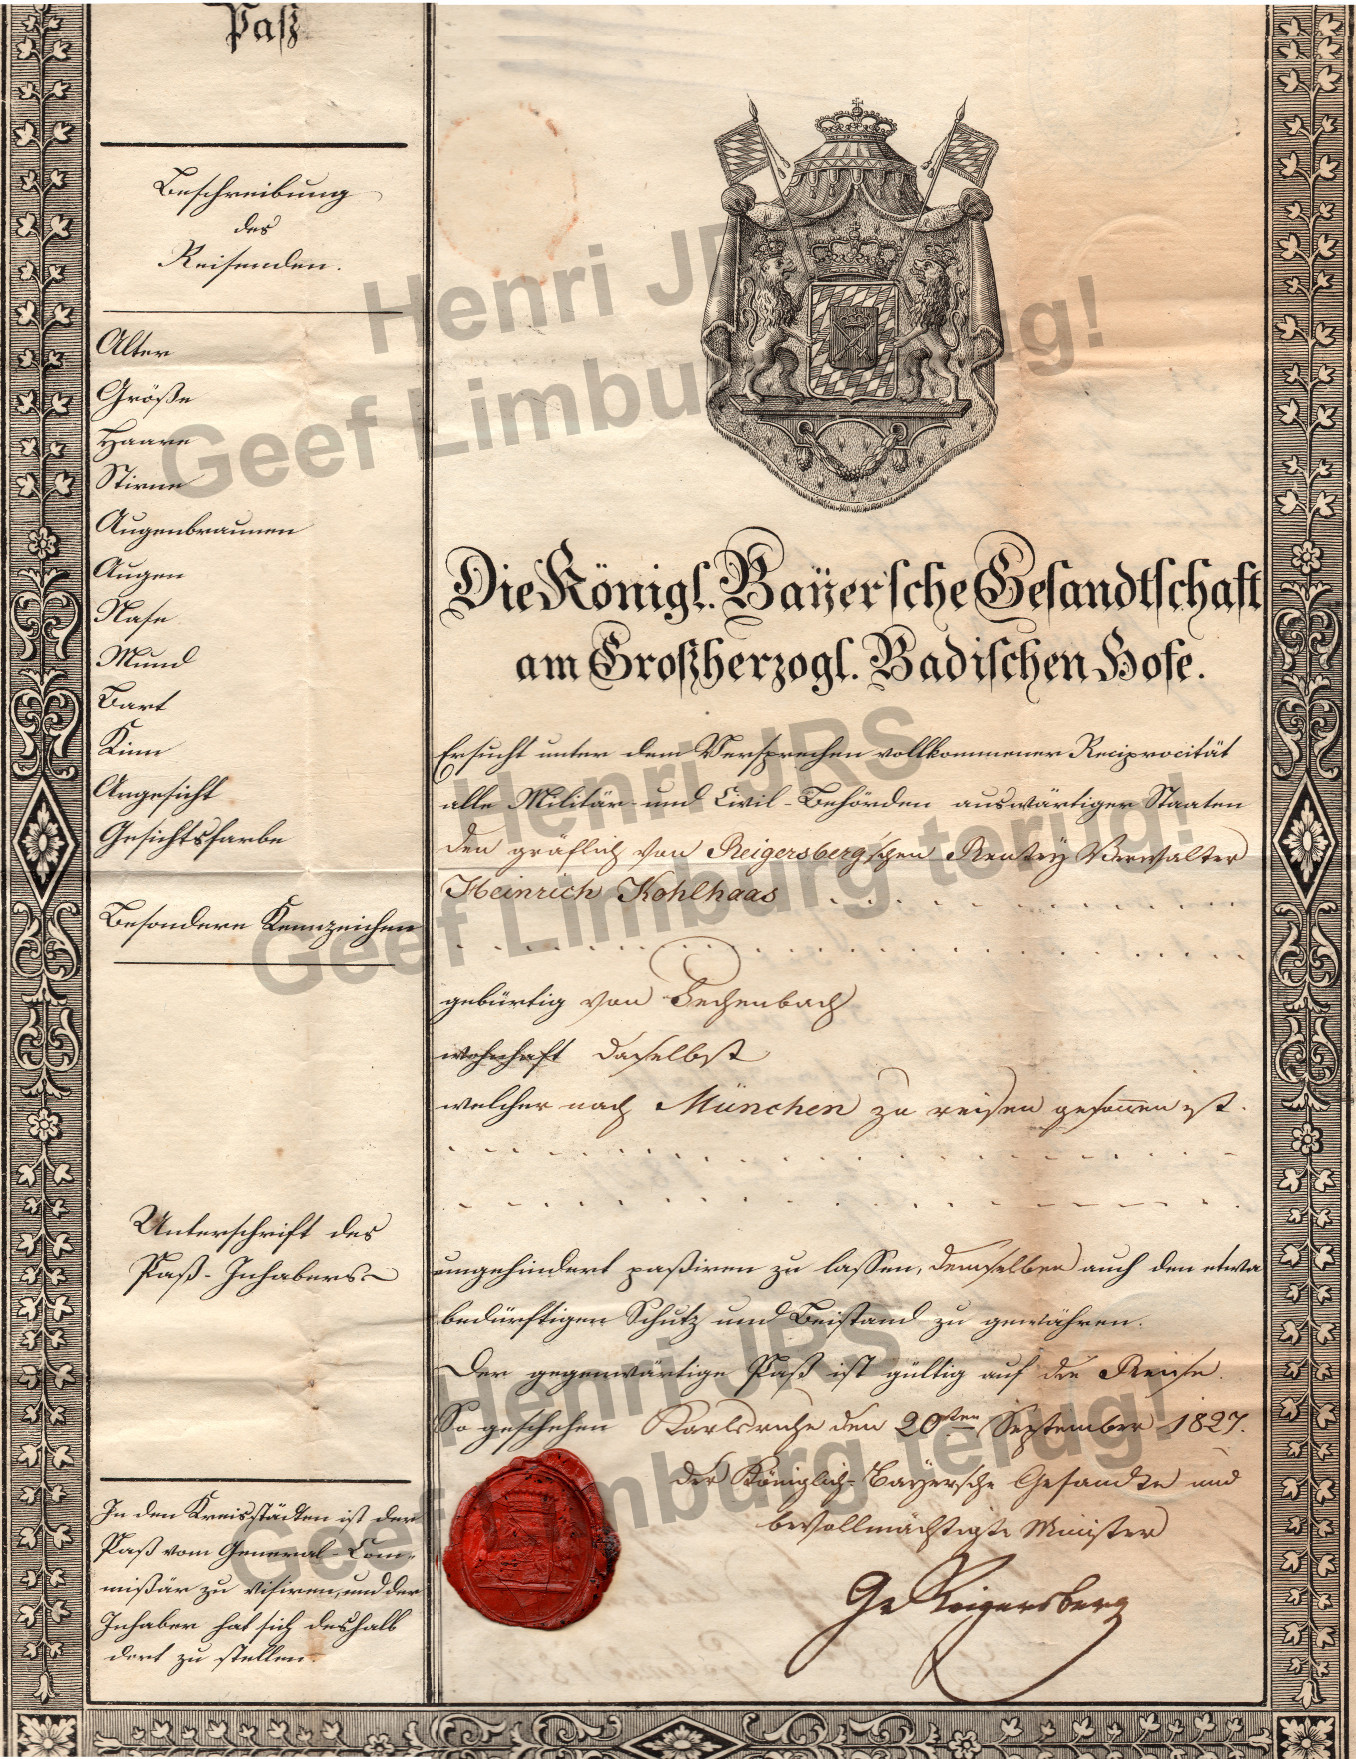 Paß
Beschreibung
des
Reisenden.
Alter
Größe
Haare
Stirne
Augenbraunen
Augen
Nase
Mund
Bart
Kinn
Angesicht
Gesichtsfarbe
Besondere Kennzeichen
Unterschrift des
Paß-Inhabers
In den Kreisstädten ist der
Paß vom General-Com-
mißär zu visiren, und der
Inhaber hat sich deshalb
dort zu stellen.
Die Königl. Bayersche Gesandtschaft
am Großherzogl. Badischen Hofe.
Ersucht unter dem Versprechen vollkommener Reciprocität
alle Militär- und Civil-Behörden auswärtiger Staaten
den gräflich von Reigersberg'schen Rentey Verwalter
Heinrich Kohlhaas
gebürtig von Fechenbach
wohnhaft daselbst
welcher nach München zu reisen gesonnen ist.
ungehindert paßiren zu lassen, demselben auch den etwa
bedürftigen Schutz und Beistand zu gewähren.
Der gegenwärtige Paß ist gültig auf die Reise.
So geschehen Karlsruhe den 20ten September 1827.
Der Königlich-Bayersche Gesandte und
bevollmächtigte Minister
Gr Reigersberg
Henri JRS
Geef Limburg terug!
Henri JRS
Geef Limburg terug!
Henri JRS
Geef Limburg terug!